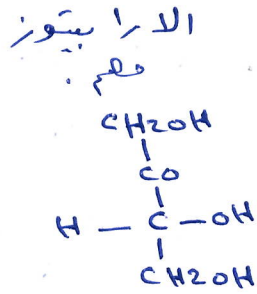 الارابيتوز
مهم .
CH2OH
CO
H — C — OH
CH2OH